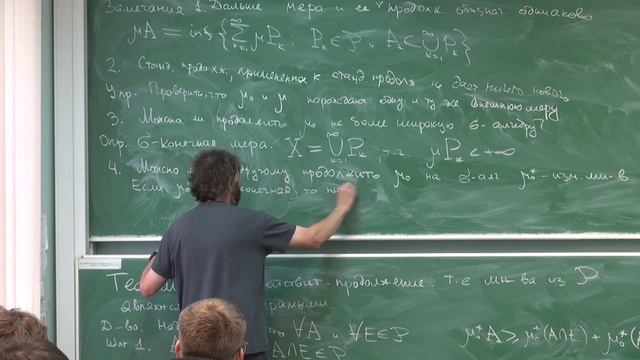 Замечания 1. Дальше мера и ее продолж. обознач. одинаково
μA = inf { ∑_{k=1}^∞ μP_k : P_k ∈ 𝒫 и A ⊂ ⋃_{k=1}^∞ P_k }
2. Станд. продолж., примененная к станд. продолж. не дает ничего нового
Упр. Проверить, что μ₀ и μ порождают одну и ту же внешнюю меру
3. Можно ли продолжить μ₀ на более широкую σ-алгебру?
Опр. σ-конечная мера. X = ⋃_{k=1}^∞ P_k, т.ч. μP_k < +∞
4. Можно другому продолжить μ₀ на σ-алг. μ₀*-изм. мн-в
Если μ₀ конечная, то
Те продолжение. т.е. мн-ва из 𝒫
являются
Д-во. ∀A и ∀E ∈ 𝒫 μ₀*A ≥ μ₀*(A∩E) + μ₀*(
Шаг 1. A∩E ∈ 𝒫